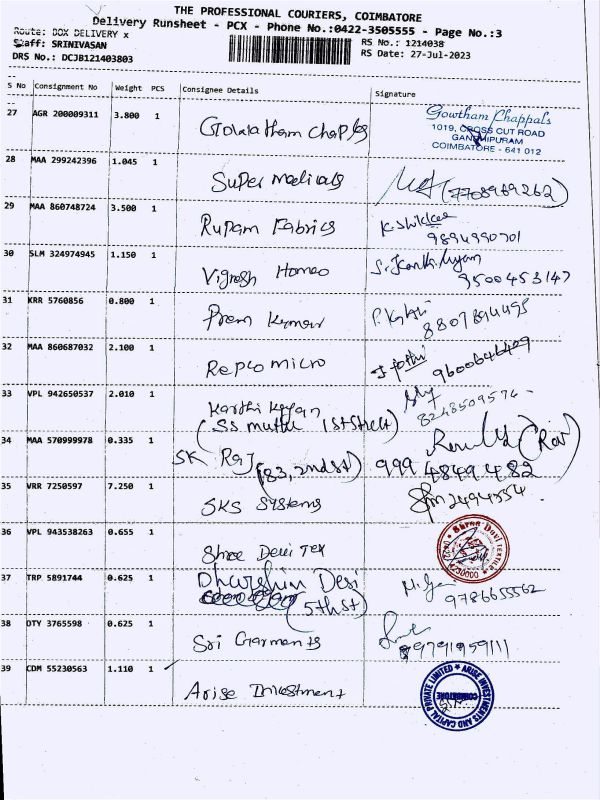 THE PROFESSIONAL COURIERS, COIMBATORE
Delivery Runsheet - PCX - Phone No.:0422-3505555 - Page No.:3
Route: BOX DELIVERY x
Staff: SRINIVASAN
DRS No.: DCJB121403803
RS No.: 1214038
RS Date: 27-Jul-2023
S No Consignment No Weight PCS Consignee Details Signature
27 AGR 200009311 3.800 1
Gowtham Chappals
1019, CROSS CUT ROAD
GANDHIPURAM
COIMBATORE - 641 012
28 MAA 299242396 1.045 1 Super medicals (7708969262)
29 MAA 860748724 3.500 1 Rupam Fabrics
9894990701
30 SLM 324974945 1.150 1 Vignesh Homeo
9500453147
31 KRR 5760856 0.800 1 Prem Kumar
8807894495
32 MAA 860687032 2.100 1 Repco micro Jothi
9600646409
33 VPL 942650537 2.010 1 Karthi Keyan
8248509576
(SS muthu 1st street)
34 MAA 570999978 0.335 1 SK Raj (83, 2nd st) 999 4849 482
35 VRR 7250597 7.250 1 SKS Systems 2494554
36 VPL 943538263 0.655 1 Shree Devi Tex
Shree Devi TEXTILE
37 TRP 5891744 0.625 1 Dharshini Desi
(5th st) 9786655562
38 DTY 3765598 0.625 1 Sri Garments
9791959111
39 CDM 55230563 1.110 1 Arise Investment
ARISE INVESTMENTS AND CAPITAL PRIVATE LIMITED
COIMBATORE